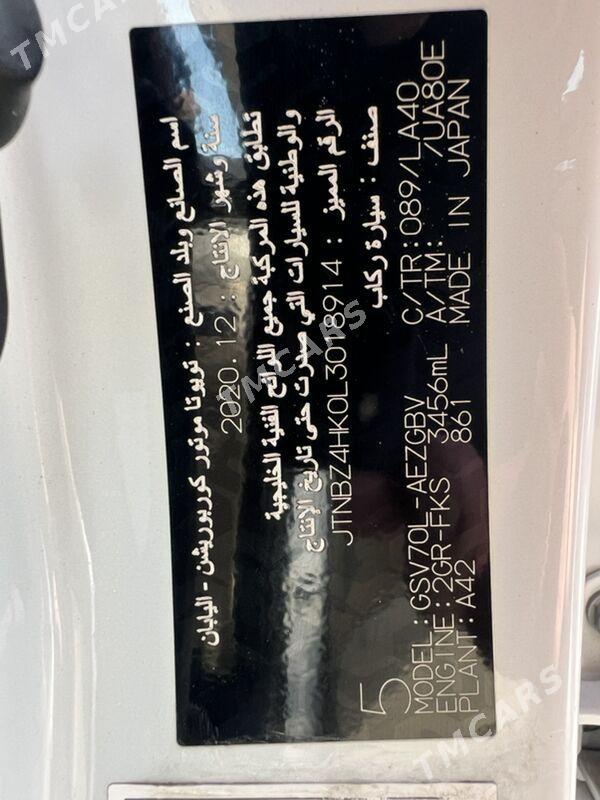 اسم الصانع وبلد الصنع : تويوتا موتور كوربوريشن - اليابان
سنة وشهر الإنتاج : 2020.12
تطابق هذه المركبة جميع اللوائح الفنية الخليجية
والوطنية للسيارات التي صنعت حتى تاريخ الإنتاج
الرقم المميز : JTNBZ4HK0L3018914
صنف : سيارة ركاب
5
MODEL:GSV70L-AEZGBV C/TR:089/LA40
ENGINE:2GR-FKS 3456mL A/TM: /UA80E
PLANT:A42 861 MADE IN JAPAN
TMCARS
TMCARS
TMCARS
TMCARS